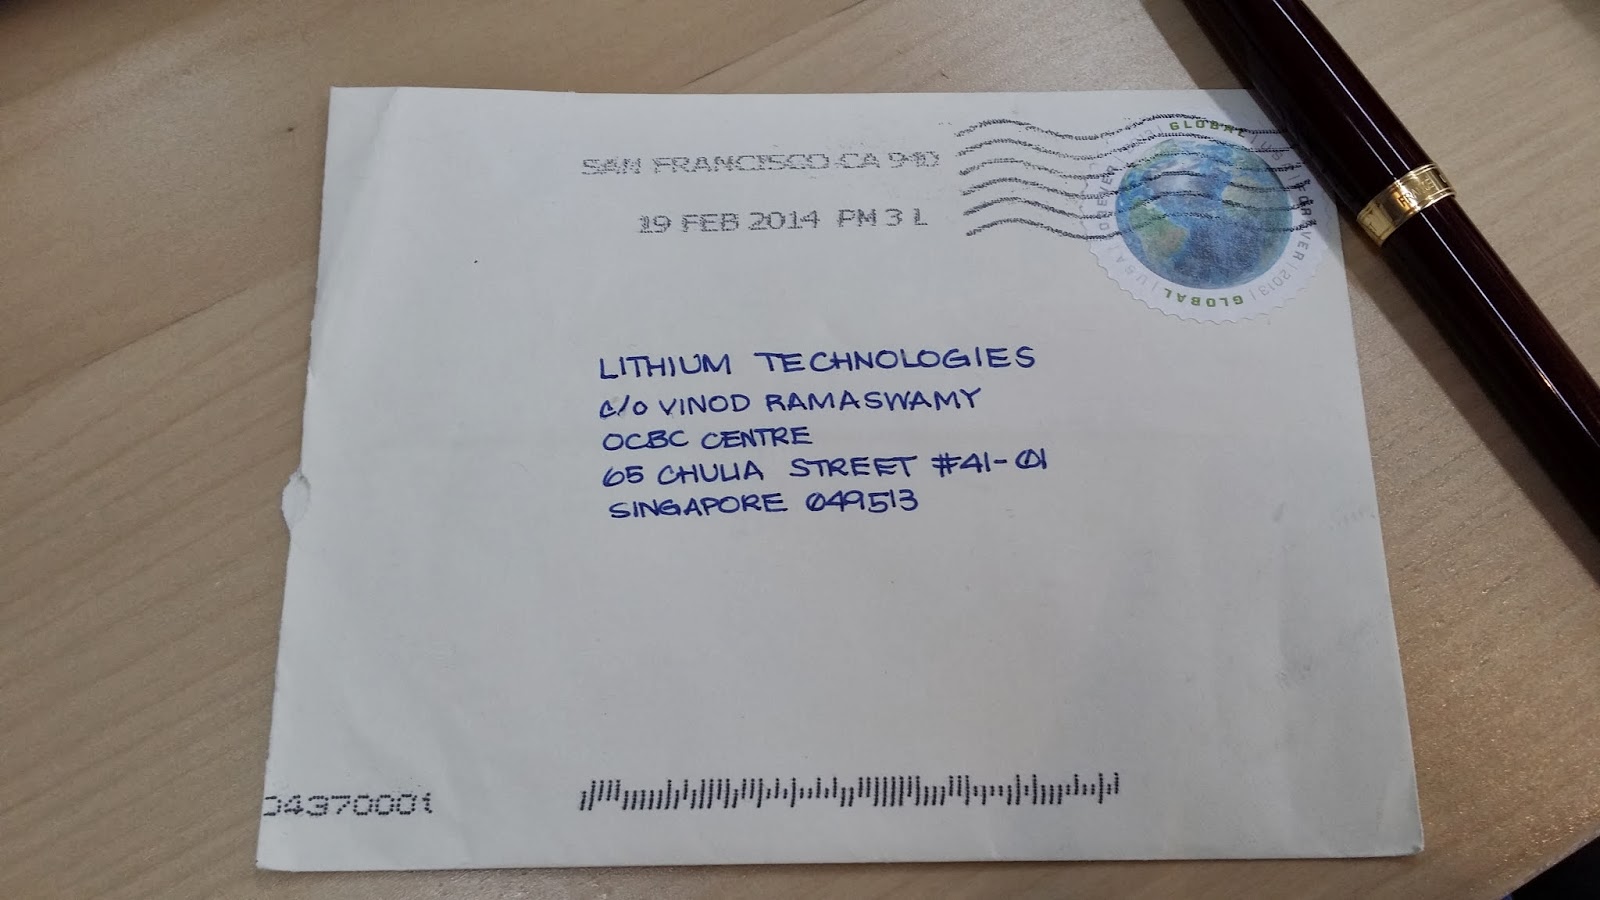 SAN FRANCISCO CA 940
19 FEB 2014 PM 3 L
GLOBAL | USA | FOREVER | 2013 | GLOBAL | USA | FOREVER | 2013
LITHIUM TECHNOLOGIES
c/o VINOD RAMASWAMY
OCBC CENTRE
65 CHULIA STREET #41-01
SINGAPORE 049513
04370001